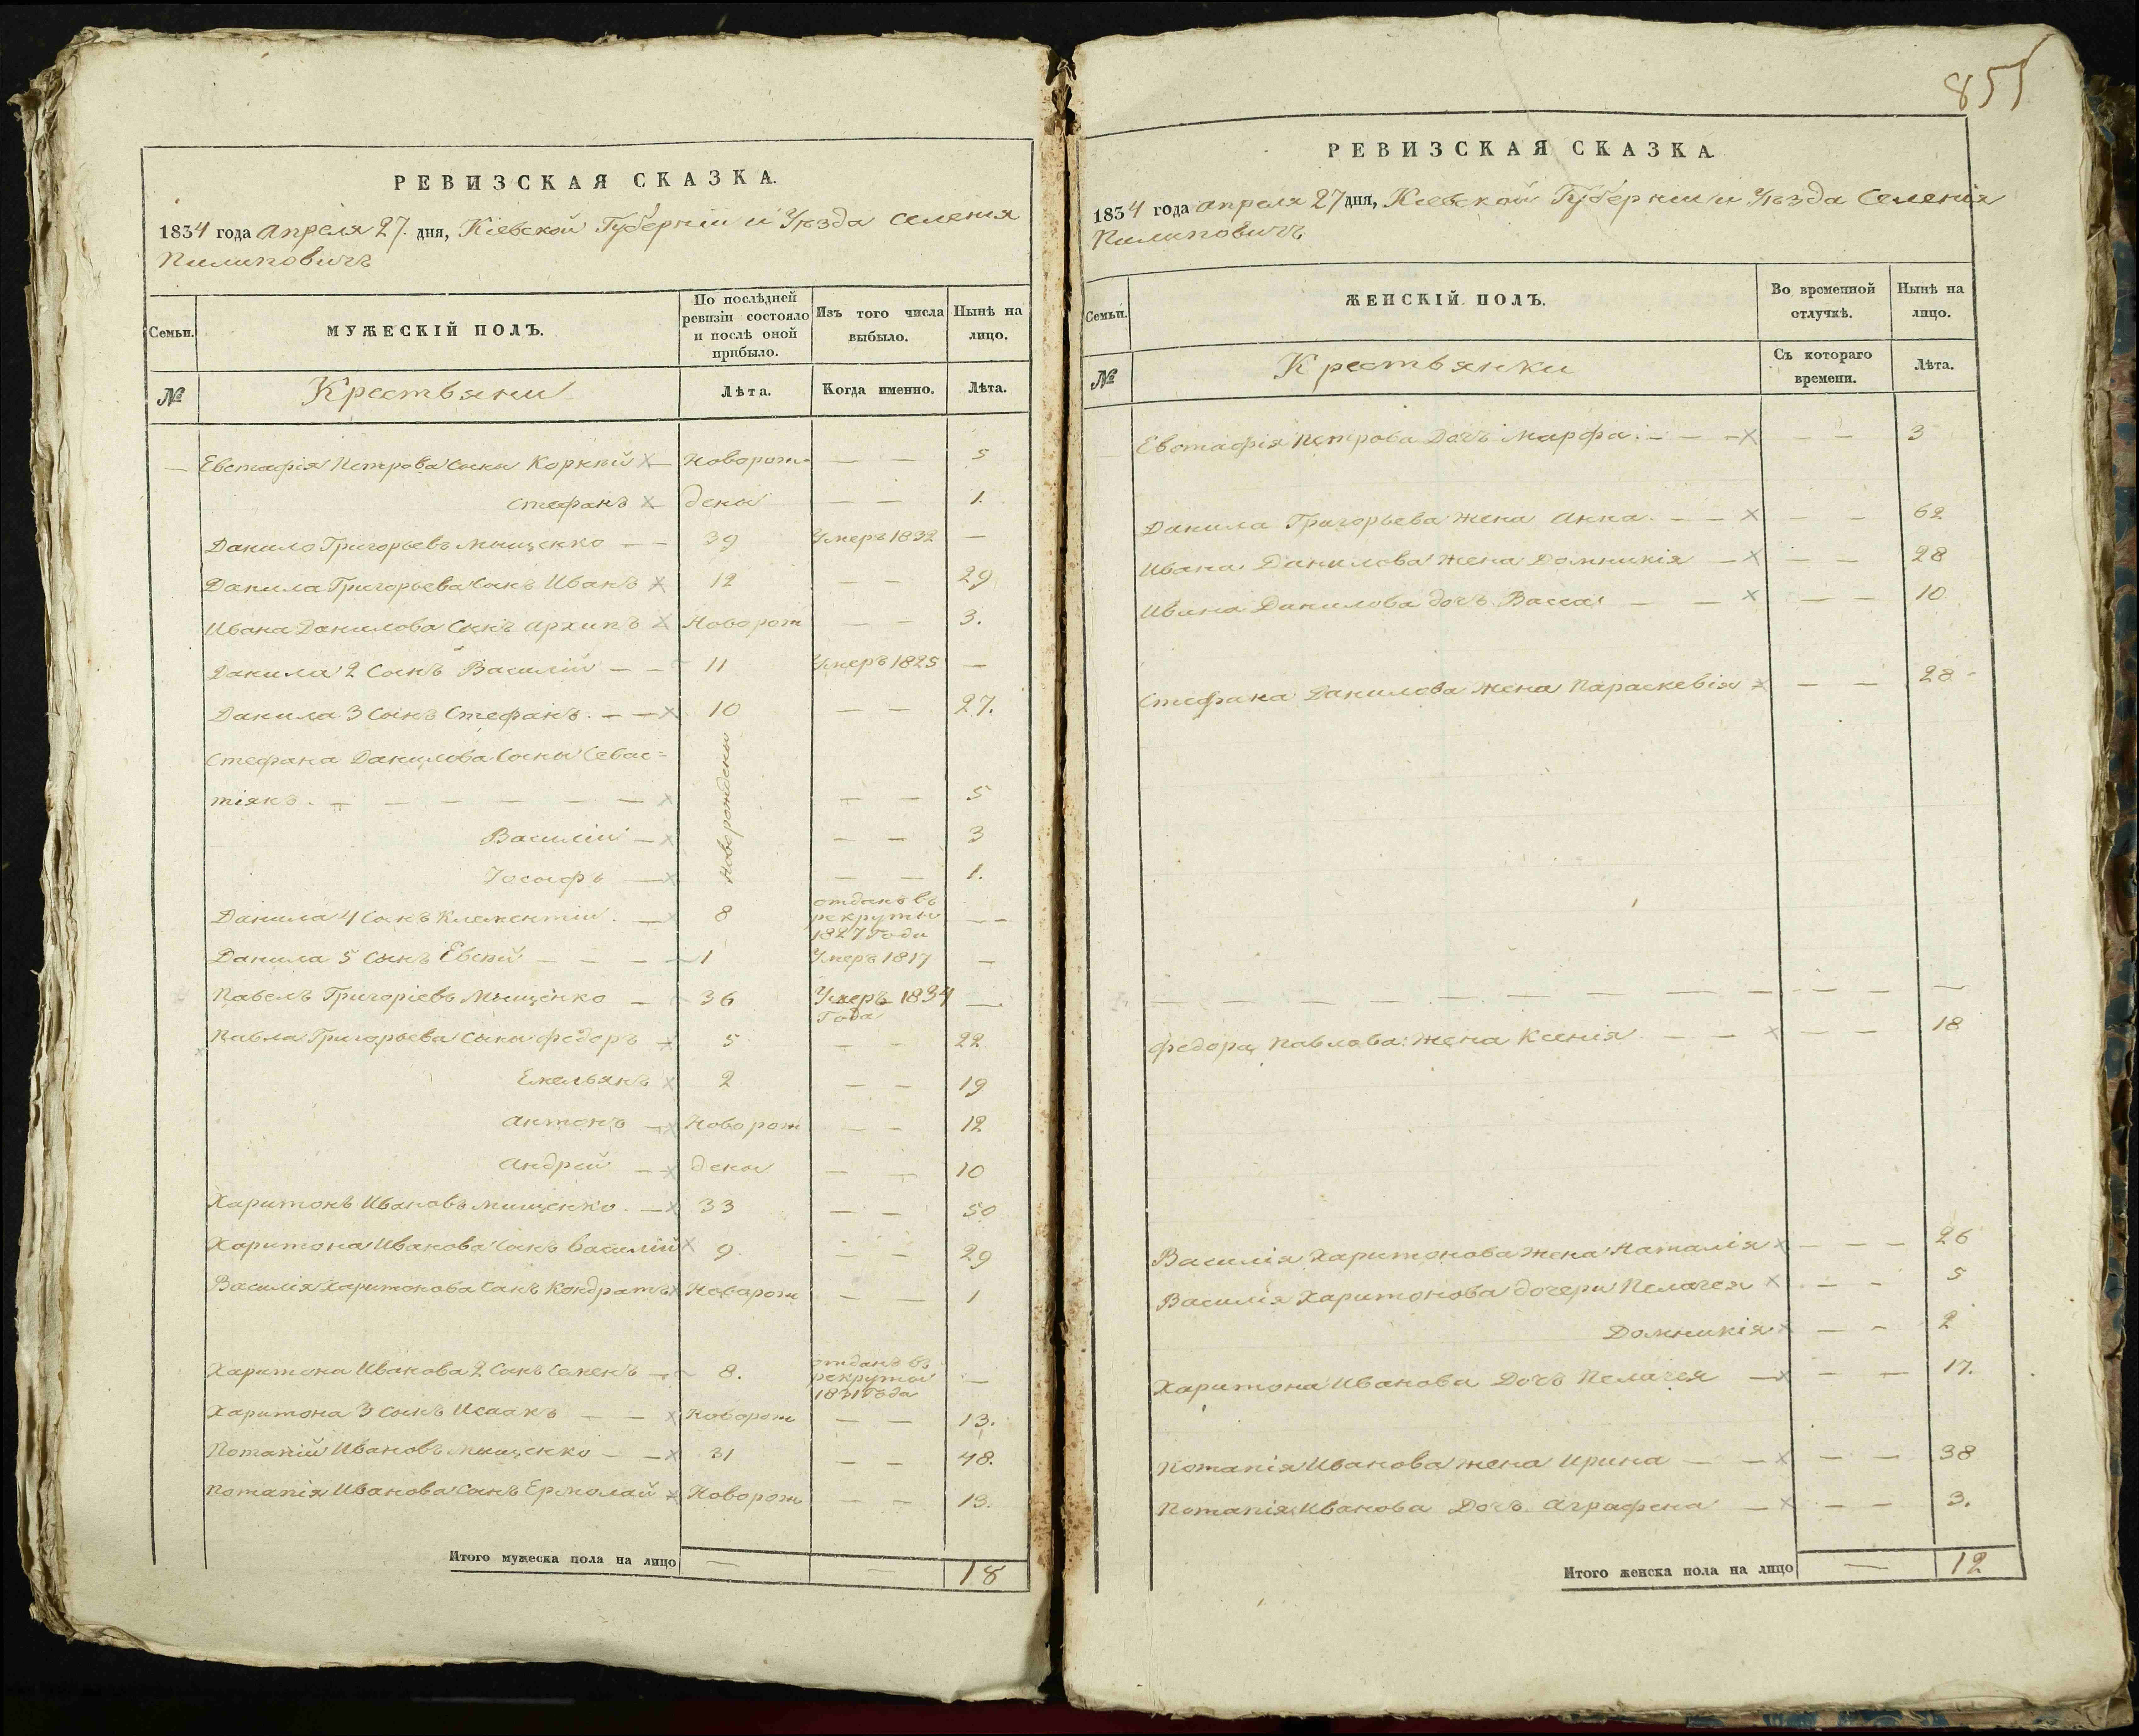 РЕВИЗСКАЯ СКАЗКА.
1834 года Апреля 27. дня, Кіевской Губерніи и Уѣзда Селенія
Пилиповичъ
Семьи.
МУЖЕСКІЙ ПОЛЪ.
По послѣдней ревизіи состояло и послѣ оной прибыло.
Изъ того числа выбыло.
Нынѣ на лицо.
№ Крестьяни Лѣта. Когда именно. Лѣта.
— Евстафія Петрова Сыны Корній × — Новорож= — — 5
Стефанъ × — дены — — 1.
Данило Григорьевъ Мищенко — — 39 Умеръ 1832 —
Данила Григорьева Сынъ Иванъ × 12 — — 29
Ивана Данилова Сынъ Архипъ × Новорож — — 3.
Данила 2 Сынъ Василій — — 11 Умеръ 1825 —
Данила 3 Сынъ Стефанъ. — — × 10 — — 27.
Стефана Данилова Сыны Севас=
тіянъ. — — — — — — — × Новорождены — — 5
Василій — × — — 3
Іосыфъ — × — — 1.
Данила 4 Сынъ Климентій. — × 8 отданъ въ рекруты 1827 Года — —
Данила 5 Сынъ — — — — 1 Умеръ 1817 —
Павелъ Григоріевъ Мищенко — 36 Умеръ 1834 Года —
Павла Григорьева Сыны Федоръ — × 5 — — 22
Емельянъ × 2 — — 19
Антонъ — × Новорож — — 12
Андрей — × дены — — 10
Харитонъ Ивановъ Мищенко. — × 33 — — 50
Харитона Иванова Сынъ Василій × 9. — — 29
Василія Харитонова Сынъ Кондратъ × Новорож — — 1
Харитона Иванова 2 Сынъ Семенъ — 8. отданъ въ рекруты 1831 Года —
Харитона 3 Сынъ Исаакъ — — × Новорож — — 13.
Потапій Ивановъ Мищенко — — × 31 — — 48.
Потапія Иванова Сынъ Ермолай × Новорож — — 13.
Итого мужеска пола на лицо — — 18
855
РЕВИЗСКАЯ СКАЗКА
1834 года Апреля 27 дня, Кіевской Губерніи и Уѣзда Селенія
Пилиповичъ
Семьи.
ЖЕНСКІЙ ПОЛЪ.
Во временной отлучкѣ.
Нынѣ на лицо.
№ Крестьянки Съ котораго времени. Лѣта.
Евстафія Петрова Дочъ Марфа. — — — × — — 3
Данила Григорьева жена Анна. — — × — — 62
Ивана Данилова жена Домникія — × — — 28
Ивана Данилова дочъ Васса — — × — — 10
Стефана Данилова жена Параскевія × — — 28
— — — — — — — — — — — — —
Федора Павлова жена Ксенія — — × — — 18
Василія Харитонова жена Наталія × — — — 26
Василія Харитонова дочери Пелагея × — — 5
Домникія × — — 2
Харитона Иванова Дочъ Пелагея — × — — 17.
Потапія Иванова жена Ирина — — × — — 38
Потапія Иванова Дочъ Аграфена — × — — 3.
Итого женска пола на лицо — 12